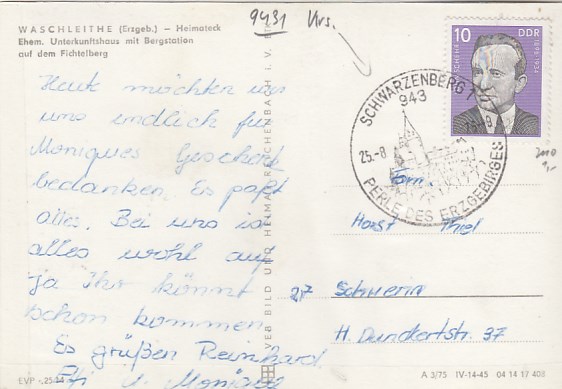 WASCHLEITHE (Erzgeb.) — Heimateck
Ehem. Unterkunftshaus mit Bergstation
auf dem Fichtelberg
Heute möchten wir
uns endlich für
Moniques Geschenk
bedanken. Es paßt
alles. Bei uns ist
alles wohl auf
ja Ihr könnt
schon kommen.
Es grüßen Reinhard
u. Monique
EVP -,25
VEB BILD UND HEIMAT REICHENBACH i. V.
9431 Krs.
10 DDR
SCHWARZENBERG 1
943
25.-8
PERLE DES ERZGEBIRGES
Fam.
Horst Thiel
27 Schwerin
H. Dunckertstr. 37
A 3/75 IV-14-45 04 14 17 408